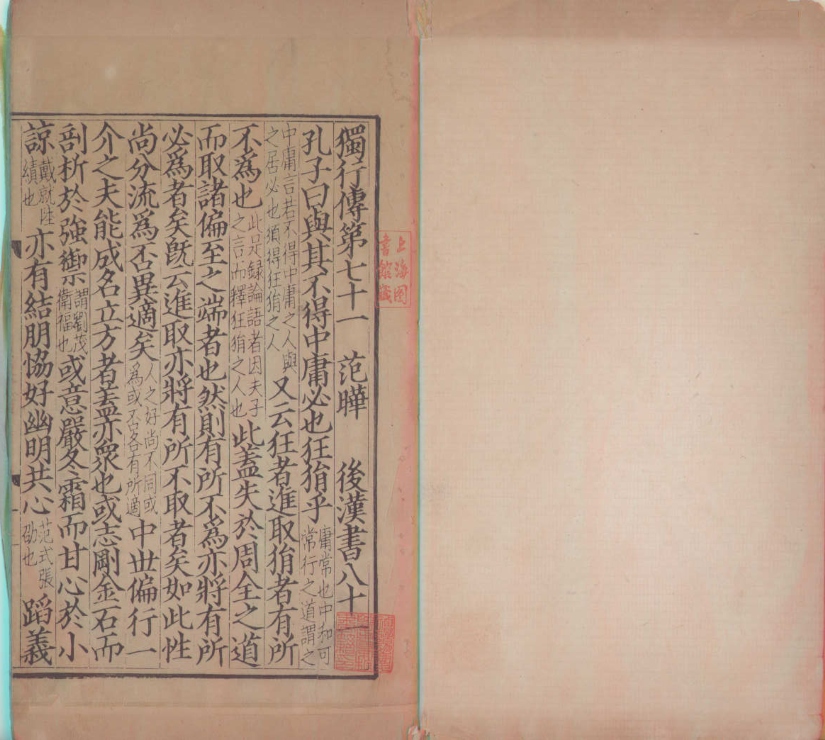 獨行傳第七十一 范曄 後漢書八十一
孔子曰與其不得中庸必也狂狷乎庸常也中和可常行之道謂之
中庸言若不得中庸之人與之居必也須得狂狷之人又云狂者進取狷者有所
不爲也此是録論語者因夫子之言而釋狂狷之人也此蓋失於周全之道
而取諸偏至之端者也然則有所不爲亦將有所
必爲者矣旣云進取亦將有所不取者矣如此性
尚分流爲否異適矣人之好尚不同或爲或否各有所適中世偏行一
介之夫能成名立方者蓋亦衆也或志剛金石而
剖析於強禦謂劉茂衛福也或意嚴冬霜而甘心於小
諒戴就陸績也亦有結朋協好幽明共心范式張劭也蹈義
上海圖書館藏